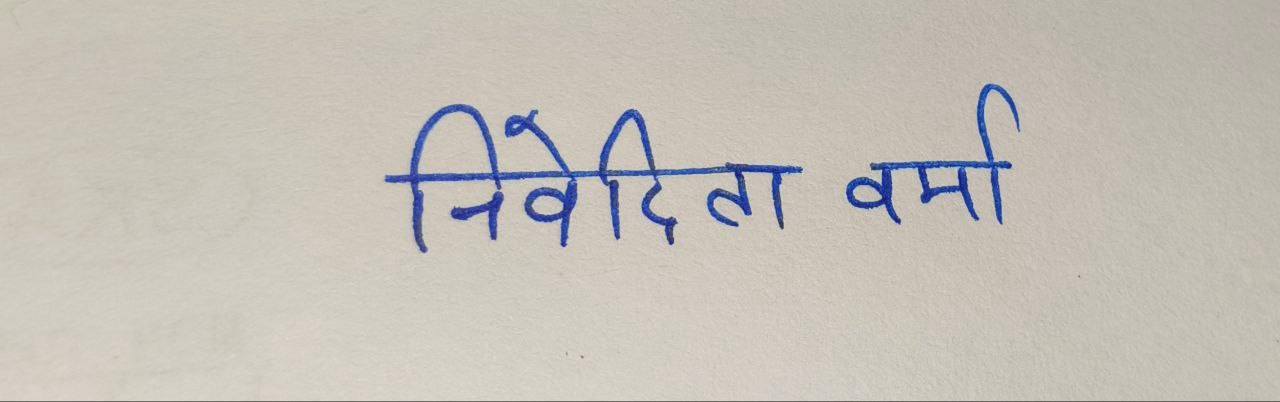 निवेदिता वर्मा